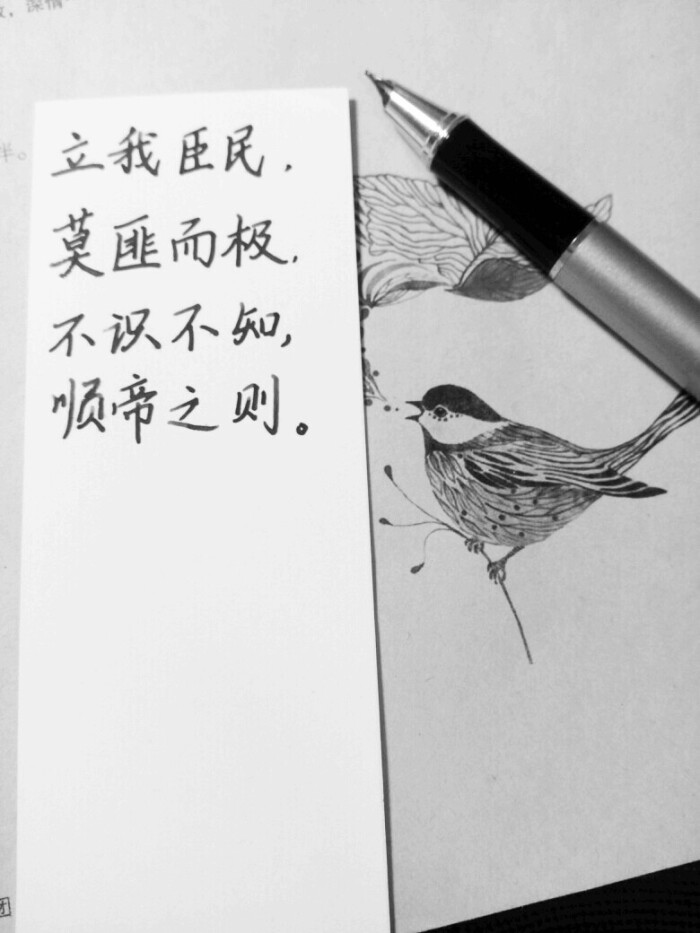 立我臣民，
莫匪而极，
不识不知，
顺帝之则。